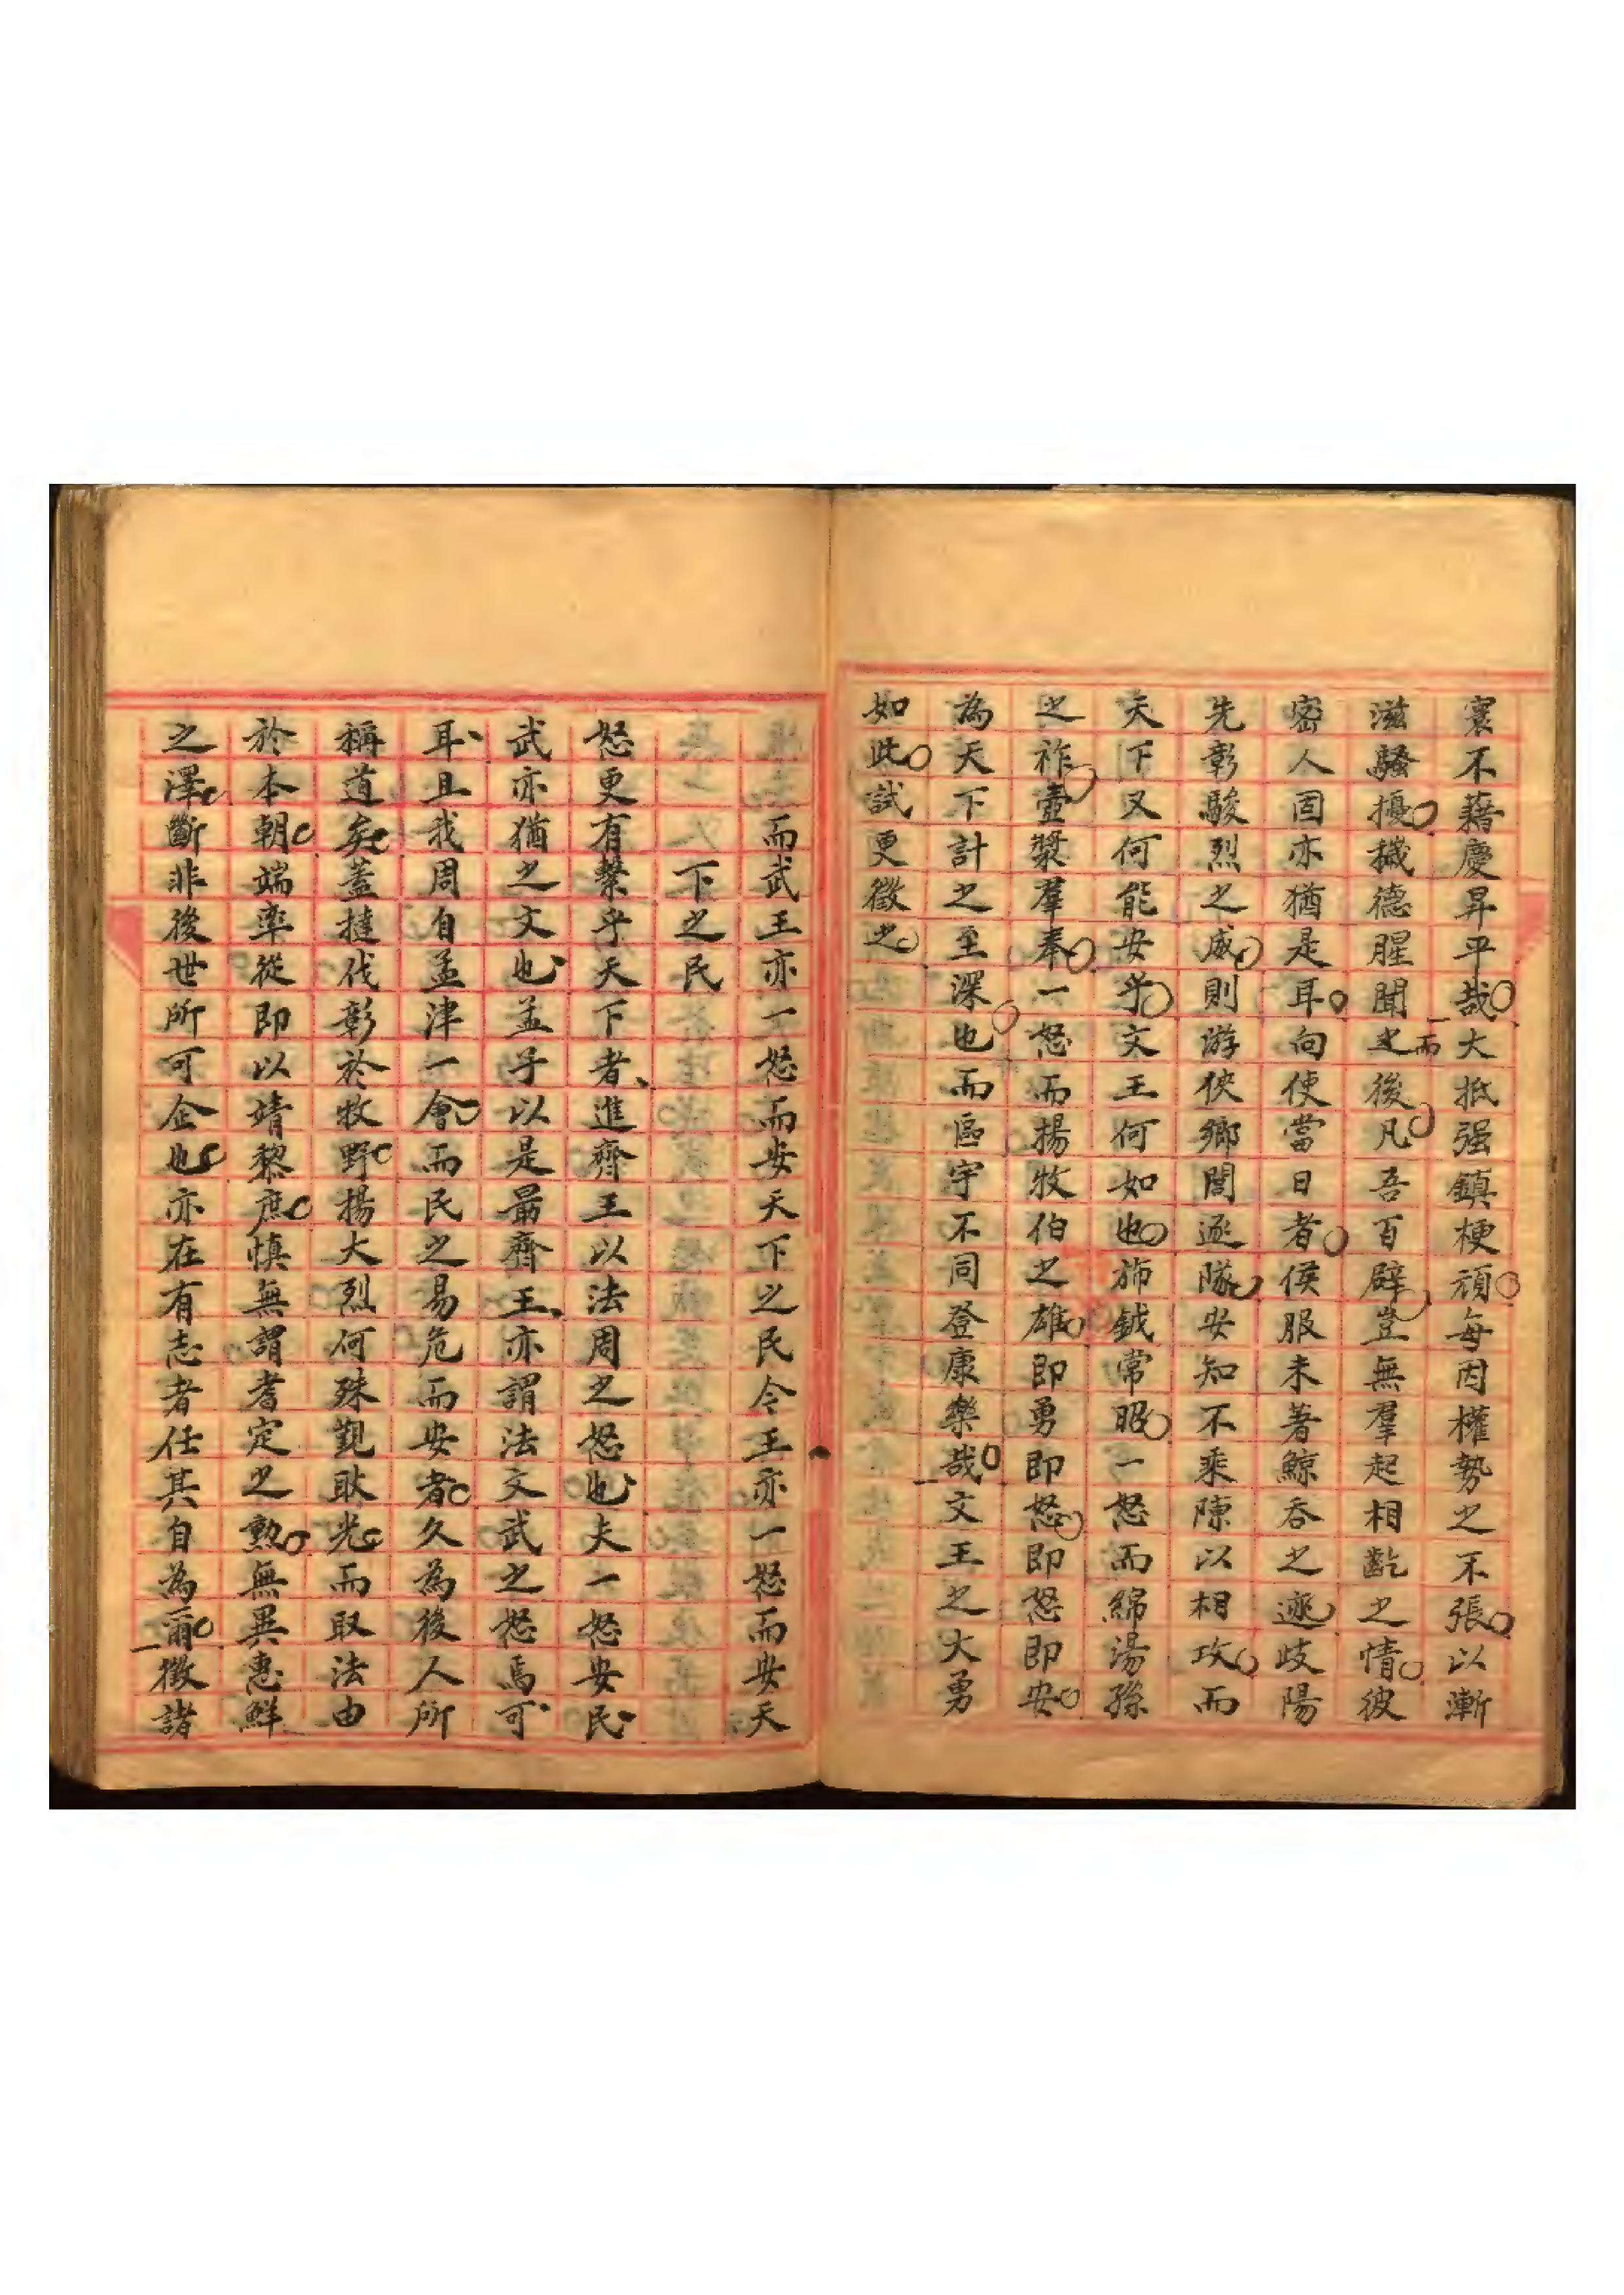 寰不藉慶昇平哉大抵强鎮梗頑每因權勢之不張以漸
滋騷擾穢德腥聞而後凡吾百辟豈無羣起相齕之情彼
密人固亦猶是耳向使當日者侯服未著鯨吞之迹岐陽
先彰駿烈之威則游俠鄉閭逐隊安知不乘陳以相攻而
天下又何能安乎文王何如也斾鉞常昭一怒而綿湯孫
之祚壺漿羣奉一怒而揚牧伯之雄即勇即怒即怒即安
為天下計之至深也而區宇不同登康樂哉文王之大勇
如此試更徵之
而武王亦一怒而安天下之民令王亦一怒而安天
下之民
怒更有繫乎天下者進齊王以法周之怒也夫一怒安民
武亦猶之文也孟子以是最齊王亦謂法文武之怒焉可
耳且我周自孟津一會而民之易危而安者久為後人所
稱道矣蓋撻伐彰於牧野揚大烈何殊覲耿光而取法由
於本朝端率從即以靖黎庶慎無謂耆定之勲無異惠鮮
之澤斷非後世所可企也亦在有志者任其自為爾徵諸